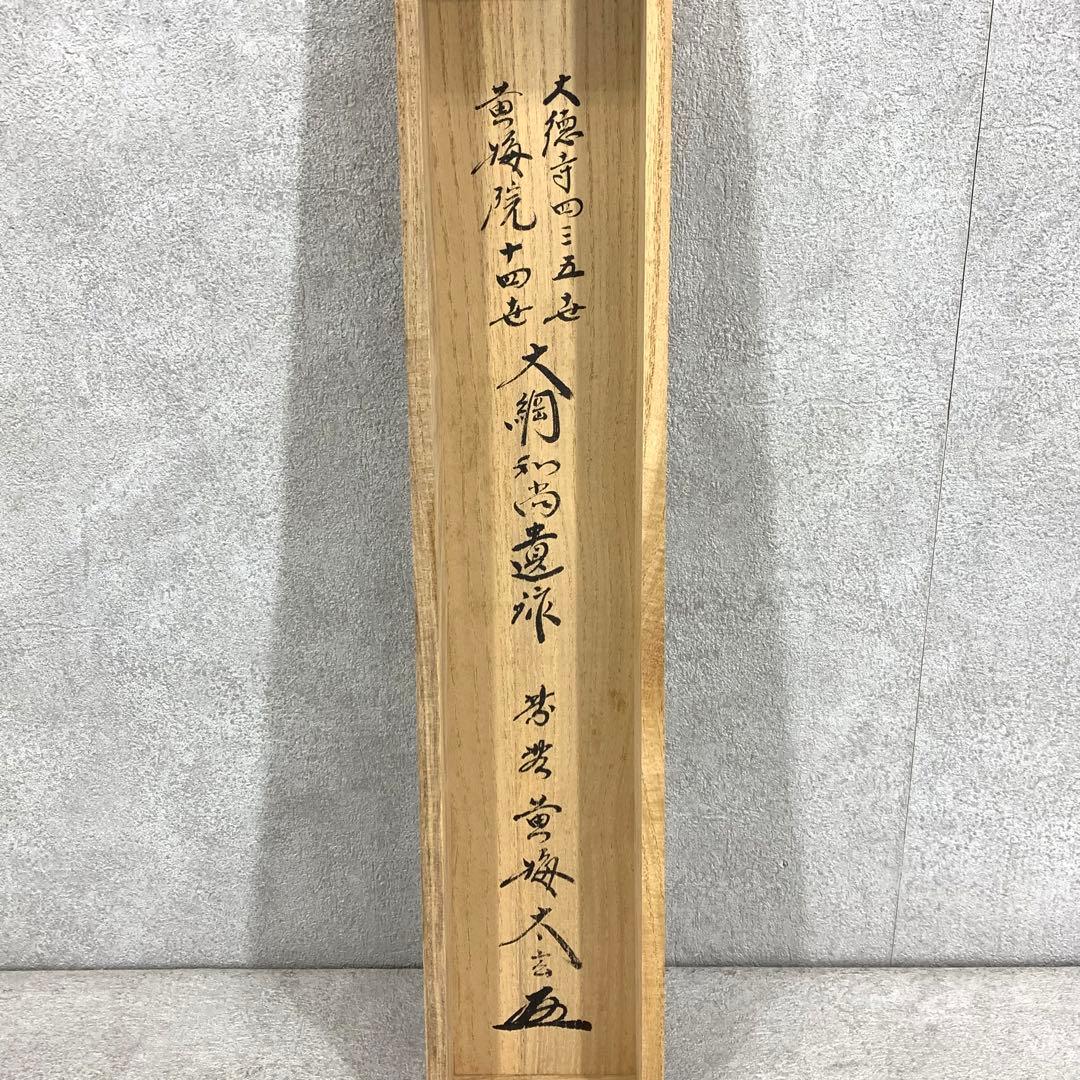 大徳寺四三五世
黄梅院十四世
大綱和尚遺作
紫野黄梅太玄